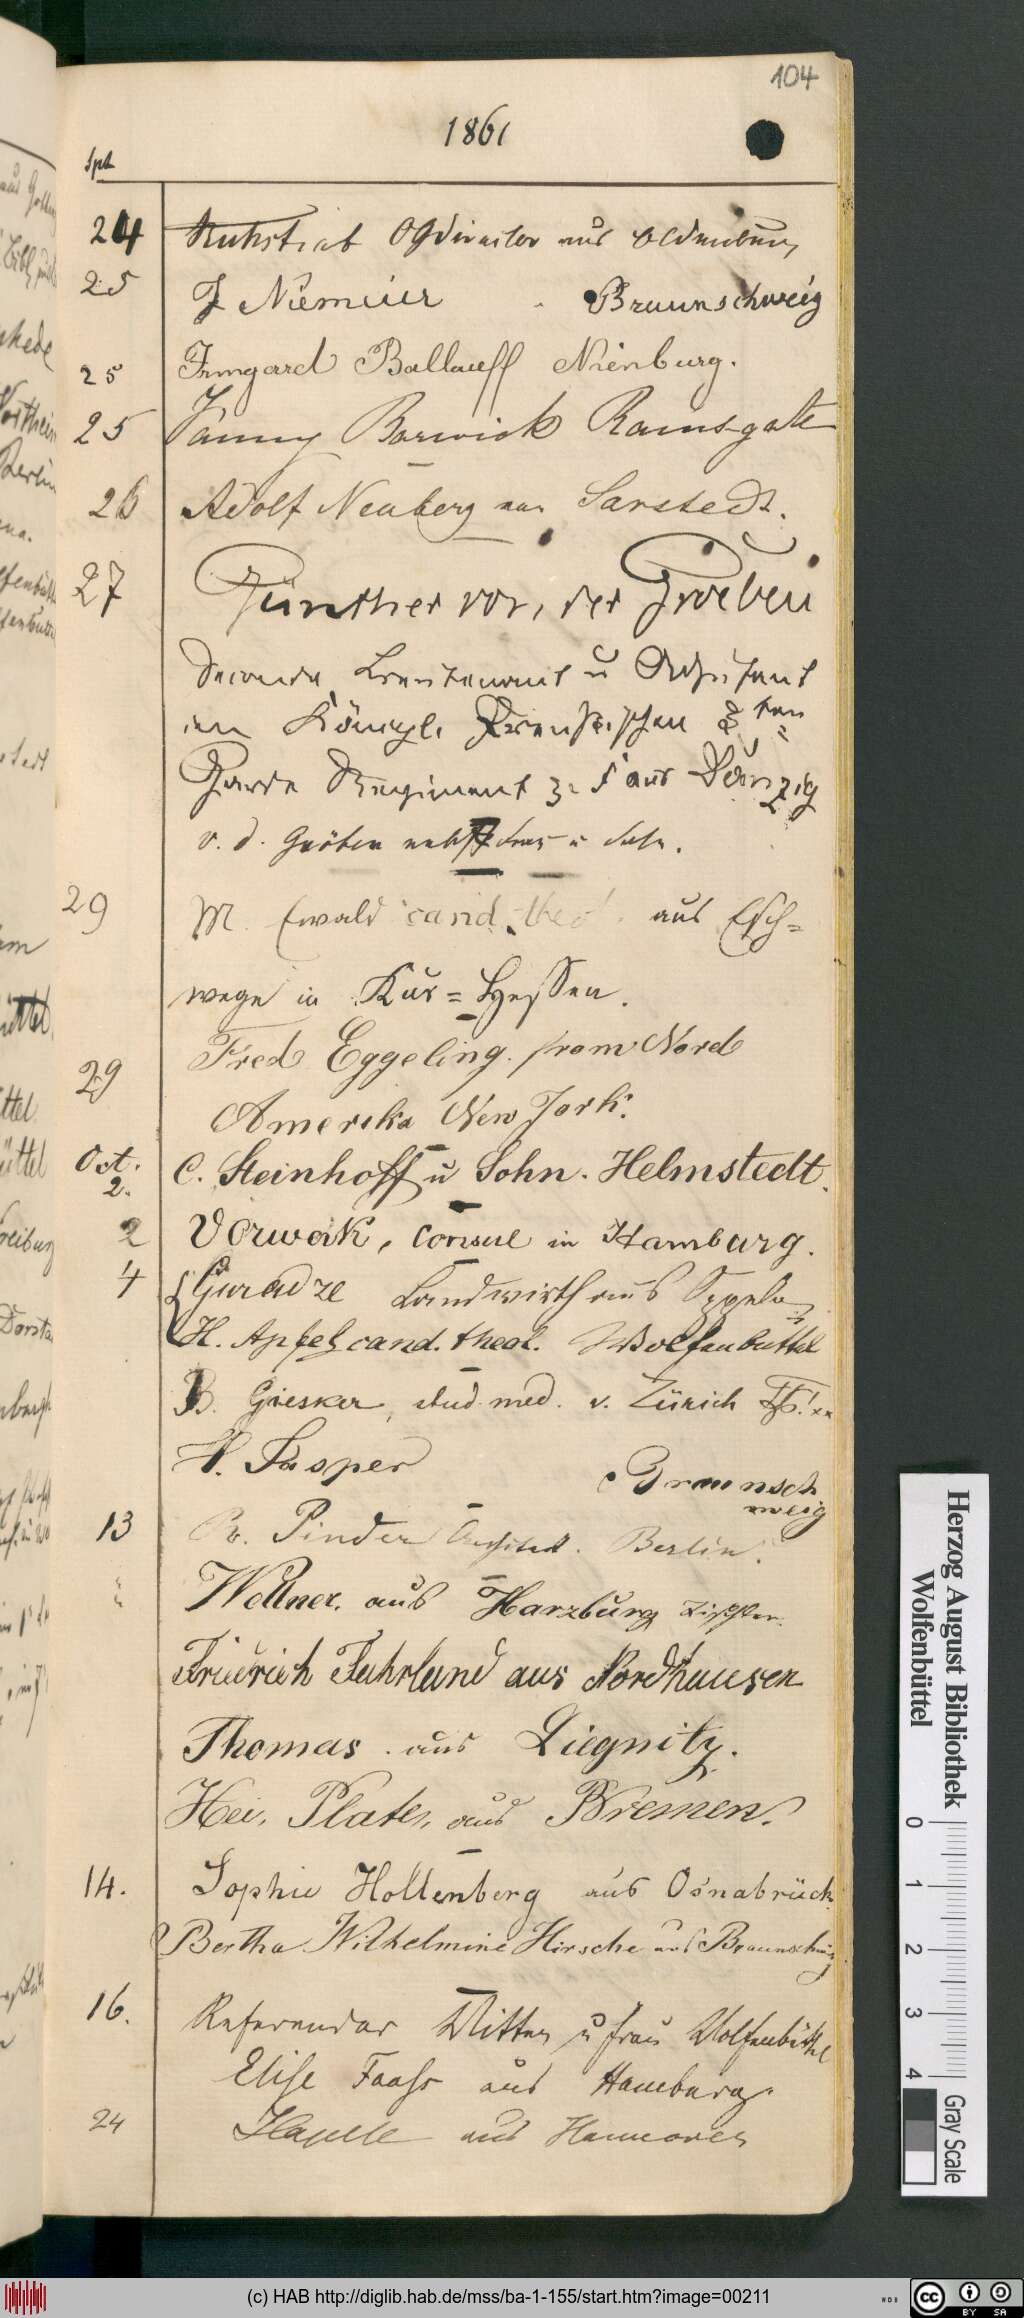 104
1861
Spt
24 Ruhstrat aus Oldenburg
25 J Niemeier Braunschweig
25 Irmgard Ballauff Nienburg.
25 Fanny Barwick Ramsgate
26 Adolf Neuberg aus Sarstedt.
27 Günther von der Groeben
Seconde Lieutenant u Adjutant
im Königl. Preußischen ten
Garde Regiment z. F aus Danzig
v. d. Gröben nebst Frau u Sohn.
29 M. Ewald cand. theol. aus Esch=
wege in Kur=Hessen.
29 Fred Eggeling. from Nord
Amerika New York.
Oct.
2. C. Steinhoff u Sohn. Helmstedt.
2 Vorwerk, Consul in Hamburg.
4 Guradze Landwirth aus
H. Apfel cand. theol. Wolfenbüttel
B. Giesker, stud. med. v. Zürich
H. Jasper Braunsch
weig
13 R. Pinder Architect. Berlin.
Wellner. aus Harzburg
Friedrich Fuhrland aus Nordhausen
Thomas. aus Liegnitz.
Plate, aus Bremen.
14. Sophie Hollenberg aus Osnabrück.
Bertha Wilhelmine Hirsche aus Braunschweig
16. Referendar Ritter u Frau Wolfenbüttel
Elise Faass aus Hamburg.
24 aus Hannover
Herzog August Bibliothek
Wolfenbüttel
0 1 2 3 4
Gray Scale
(c) HAB http://diglib.hab.de/mss/ba-1-155/start.htm?image=00211
WDB
cc BY SA